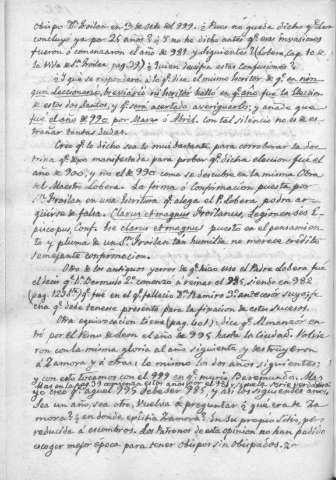 Obispo Dn. Froilan en 3 de de 999. ¿Pues no queda dicho qe
concluyo ya por 25 años? ¿Y no he dicho antes qe eras invasiones
fueron ó comenzaron el año de 981 y siguientes? (Lobera, Cap. 10 de
la Vida de Sn. Froilan pag. 39) ¿Quien desifra estas confusiones?
¿Y que se responderá á lo qe dice el mismo Escritor de qe en nin-
gun leccionario, breviario ni Escritor halló en qe año fué la Eleccion
de estos dos Santos, y qe será acertado averiguarlo; y añade que
fué el año de 990 por Marzo ó Abril. Con tal silencio no es de es-
trañar tantas dudas.
Creo qe lo dicho sea lo mui bastante para corroborar la doc-
trina qe dejo manifestada para probar qe dicha eleccion fué el
año de 900, y no el de 990 como se descubre en la misma Obra
del Maestro Lobera. La forma ó Confirmacion puesta por
Sn. Froilan en una Escritura qe alega el P. Lobera podra ar-
güirse de falsa. Clarus et magnus Froilanus, Legionensis E-
piscopus, Conf. Ese clarus et magnus puesto en el pensamien-
to y pluma de un Sn. Froilan tan humilde no merece crédito
semejante confirmacion.
Otro de los antiguos yerros de qe hizo caso el Padre Lobera fué
el decir qe Dn. Bermudo 2º comenzó á reinar el 985, siendo en 982
(pag. 123) qe fué en el qe falleció Dn. Ramiro 3º antecesor suyo; fe-
cha qe debe tenerse presente para la fijacion de estos sucesos.
Otra equivocacion tiene (pag. 601); dice qe Almanzor en-
tró por el Reino de Leon el año de 995 hasta la Ciudad. Volvie-
ron con la misma gloria al año siguiente y destruyeron
á Zamora y á otras; lo mismo los dos años siguientes;
y con esto tocamos con el 999 en qe murió Sn. Froilan.
yo creo qe aquel 995 debe ser 985, y asi los siguientes años.
Sea un año, sea otro, vuelvo á preguntar ¿que era de Za-
mora? ¿en donde existia Zamora? En su propio sitio, pero
reducida á escombros. Los Patronos de esta opinion no han podido
escoger mejor epoca para tener obispos sin obispados.